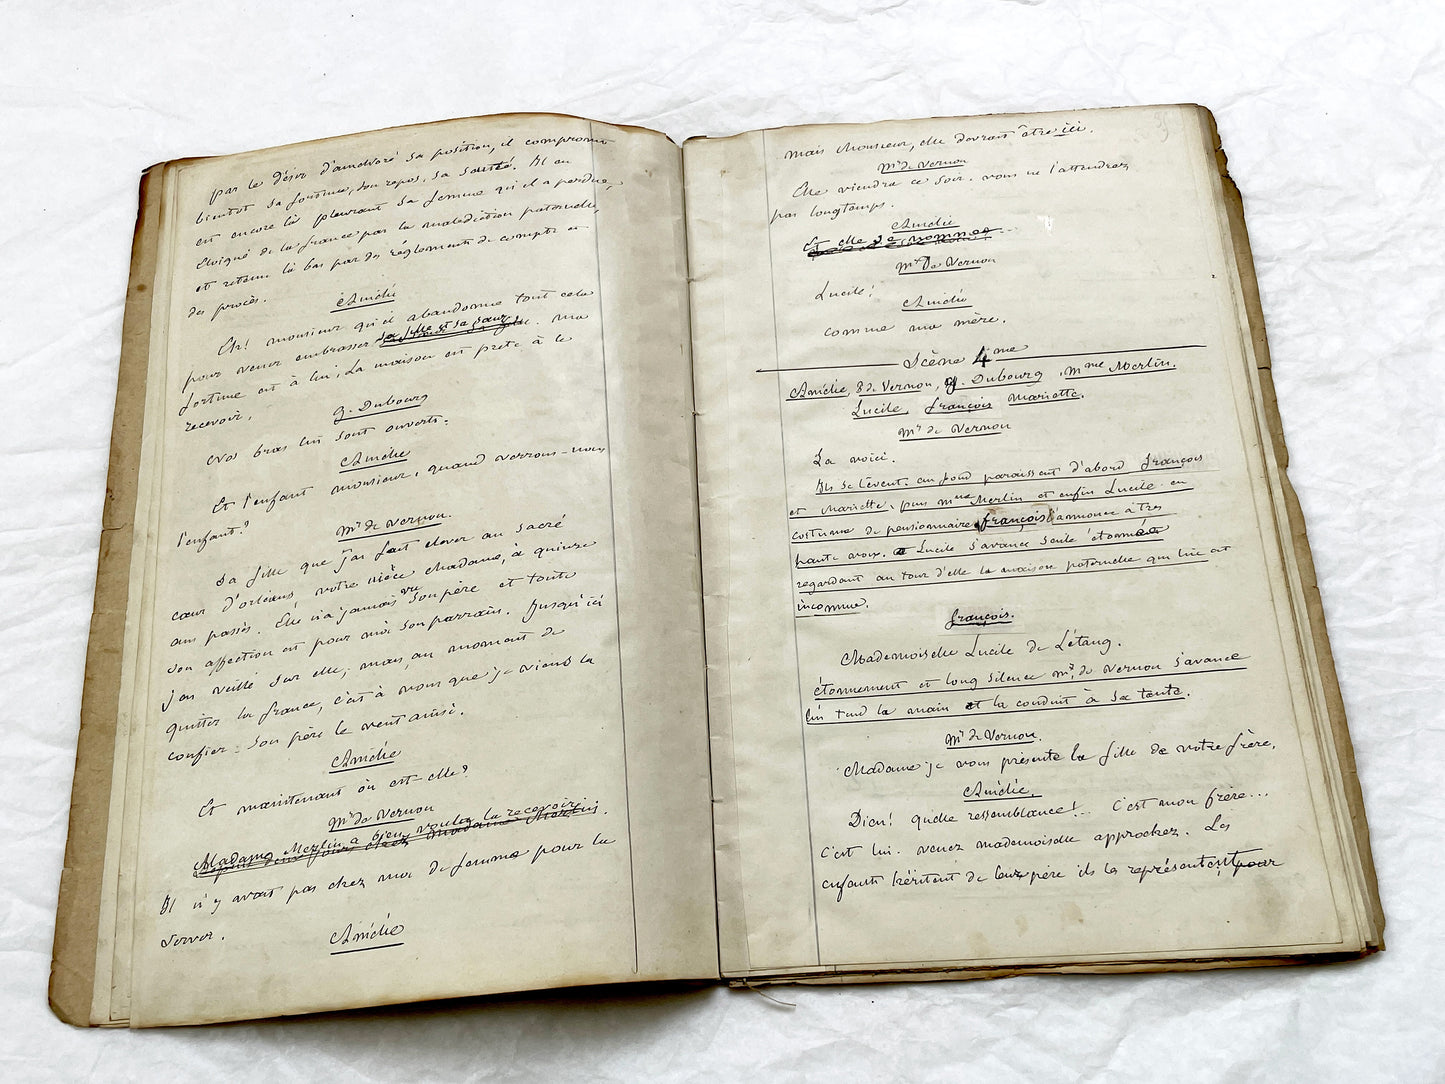 par le désir d'améliorer sa position, il compromit
bientôt sa fortune, son repos, sa santé. Il en
est encore là pleurant sa femme qu'il a perdue,
éloigné de la france par la malédiction paternelle,
et retenu là bas par des réglements de compte et
des procès.
Amélie
Ah! monsieur qu'il abandonne tout cela
pour venir embrasser sa fille et sa sœur. Ma
fortune est à lui, la maison est prete à le
recevoir.
g. Dubourg
Nos bras lui sont ouverts.
Amélie
Et l'enfant monsieur, quand verrons-nous
l'enfant?
Mr de Vernon.
Sa fille que j'ai fait élever au sacré
cœur d'orléans votre nièce Madame, à quinze
ans passés. Elle n'a jamais vu son père et toute
son affection est pour moi son parrain. Jusqu'ici
j'ai veillé sur elle, mais, au moment de
quitter la france, c'est à vous que je viens la
confier. Son père le veut ainsi.
Amélie
Et maintenant où est-elle?
Mr de Vernon
Madame Merlin a bien voulu la recevoir
Madame Merlin.
Il n'y avait pas chez moi de femme pour la
servir.
Amélie
mais Monsieur, elle devrait être ici.
Mr de Vernon
Elle viendra ce soir. vous ne l'attendrez
pas longtemps.
Amélie
Et elle se nomme
Mr De Vernon
Lucile!
Amélie
comme ma mère.
Scène 4me
Amélie, 8 de Vernon, g. Dubourg, Mme Merlin.
Lucile, françois Mariette.
Mr de Vernon
La voici.
Ils se lèvent. au fond paraissent d'abord françois
et Mariette, puis Mme Merlin et enfin Lucile en
costume de pensionnaire. françois l'annonce à très
haute voix. Lucile s'avance seule étonnée
regardant au tour d'elle la maison paternelle qui lui est
inconnue.
françois.
Mademoiselle Lucile de L'étang.
étonnement et long silence Mr. de Vernon s'avance
lui tend la main et la conduit à sa tante.
Mr de Vernon.
Madame je vous présente la fille de votre frère.
Amélie.
Dieu! quelle ressemblance!... C'est mon frère...
C'est lui. venez mademoiselle approchez. Les
enfants héritent de leur père ils le représentent pour